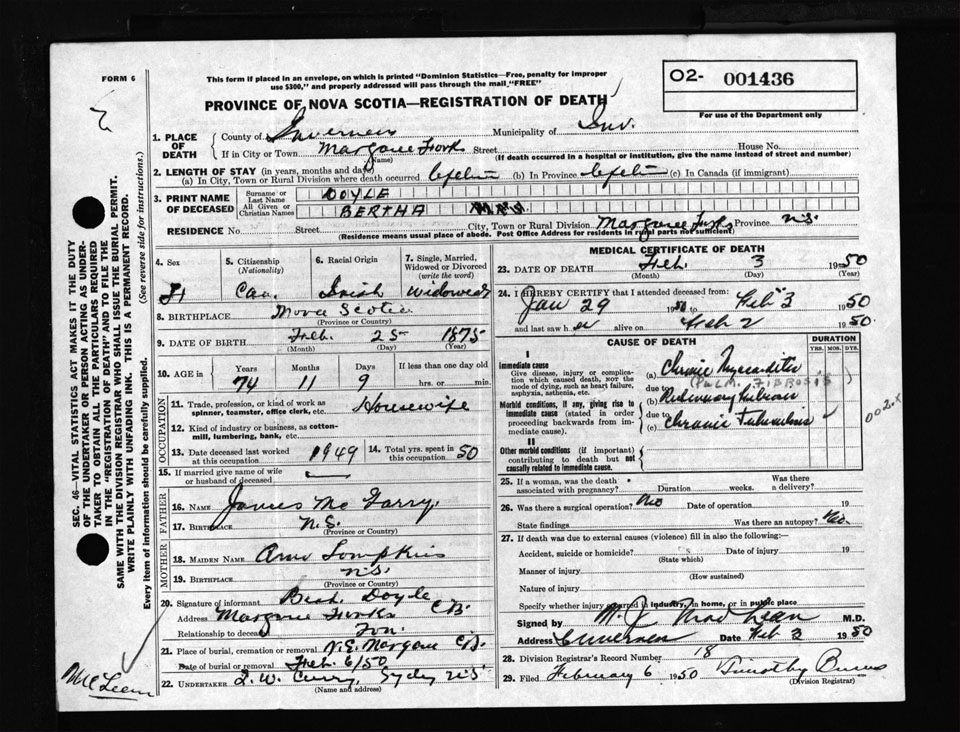 FORM 6
This form if placed in an envelope, on which is printed "Dominion Statistics—Free, penalty for improper
use $300," and properly addressed will pass through the mail "FREE"
O2- 001436
For use of the Department only
PROVINCE OF NOVA SCOTIA—REGISTRATION OF DEATH
1. PLACE OF DEATH County of Inverness Municipality of Inv.
If in City or Town Margaree Forks Street House No.
(Name) (If death occurred in a hospital or institution, give the name instead of street and number)
2. LENGTH OF STAY (in years, months and days)
(a) In City, Town or Rural Division where death occurred lifetime (b) In Province lifetime (c) In Canada (if immigrant)
3. PRINT NAME OF DECEASED Surname or Last Name DOYLE
All Given or Christian Names BERTHA
RESIDENCE No. Street City, Town or Rural Division Margaree Forks Province N.S.
(Residence means usual place of abode. Post Office Address for residents in rural parts not sufficient)
4. Sex 5. Citizenship (Nationality) 6. Racial Origin 7. Single, Married, Widowed or Divorced (write the word)
F Can. Irish Widowed
8. BIRTHPLACE Nova Scotia
(Province or Country)
9. DATE OF BIRTH Feb. 25 1875
(Month) (Day) (Year)
10. AGE in Years Months Days If less than one day old
74 11 9 hrs. or min.
OCCUPATION
11. Trade, profession, or kind of work as spinner, teamster, office clerk, etc. Housewife
12. Kind of industry or business, as cotton-mill, lumbering, bank, etc.
13. Date deceased last worked at this occupation 1949 14. Total yrs. spent in this occupation 50
15. If married give name of wife or husband of deceased
FATHER
16. NAME James Mc Garry
17. BIRTHPLACE N.S.
(Province or Country)
MOTHER
18. MAIDEN NAME Ann Tompkins
19. BIRTHPLACE N.S.
(Province or Country)
20. Signature of informant Doyle
Address Margaree Forks C.B.
Relationship to deceased Son
21. Place of burial, cremation or removal N.E. Margaree C.B.
Date of burial or removal Feb. 6/50
22. UNDERTAKER T. W. Curry, Sydney N.S.
(Name and address)
MEDICAL CERTIFICATE OF DEATH
23. DATE OF DEATH Feb. 3 1950
(Month) (Day) (Year)
24. I HEREBY CERTIFY that I attended deceased from:
Jan 29 19 Feb 3 1950
and last saw her alive on Feb 2 1950.
CAUSE OF DEATH DURATION
YRS. MOS. DYS.
I
Immediate cause
Give disease, injury or complication which caused death, NOT the mode of dying, such as heart failure, asphyxia, asthenia, etc.
(a) Chronic Myocarditis
(PULM. FIBROSIS)
due to
Morbid conditions, if any, giving rise to immediate cause (stated in order proceeding backwards from immediate cause).
(b) Pulmonary Fibrosis
due to
(c) Chronic Tuberculosis
002.x
II
Other morbid conditions (if important) contributing to death but not causally related to immediate cause.
25. If a woman, was the death associated with pregnancy? Duration weeks. Was there a delivery?
26. Was there a surgical operation? No Date of operation 19
State findings Was there an autopsy? No.
27. If death was due to external causes (violence) fill in also the following:
Accident, suicide or homicide? Date of injury 19
(State which)
Manner of injury
(How sustained)
Nature of injury
Specify whether injury occurred in industry, in home, or in public place
Signed by M. J. MacLean M.D.
Address Inverness Date Feb 3 1950
28. Division Registrar's Record Number 18
29. Filed February 6 1950 Timothy Burns
(Division Registrar)
SEC. 46—VITAL STATISTICS ACT MAKES IT THE DUTY
OF THE UNDERTAKER OR PERSON ACTING AS UNDER-
TAKER TO OBTAIN ALL THE PARTICULARS REQUIRED
IN THE "REGISTRATION OF DEATH" AND TO FILE THE
SAME WITH THE DIVISION REGISTRAR WHO SHALL ISSUE THE BURIAL PERMIT.
WRITE PLAINLY WITH UNFADING INK. THIS IS A PERMANENT RECORD.
Every item of information should be carefully supplied. (See reverse side for instructions.)